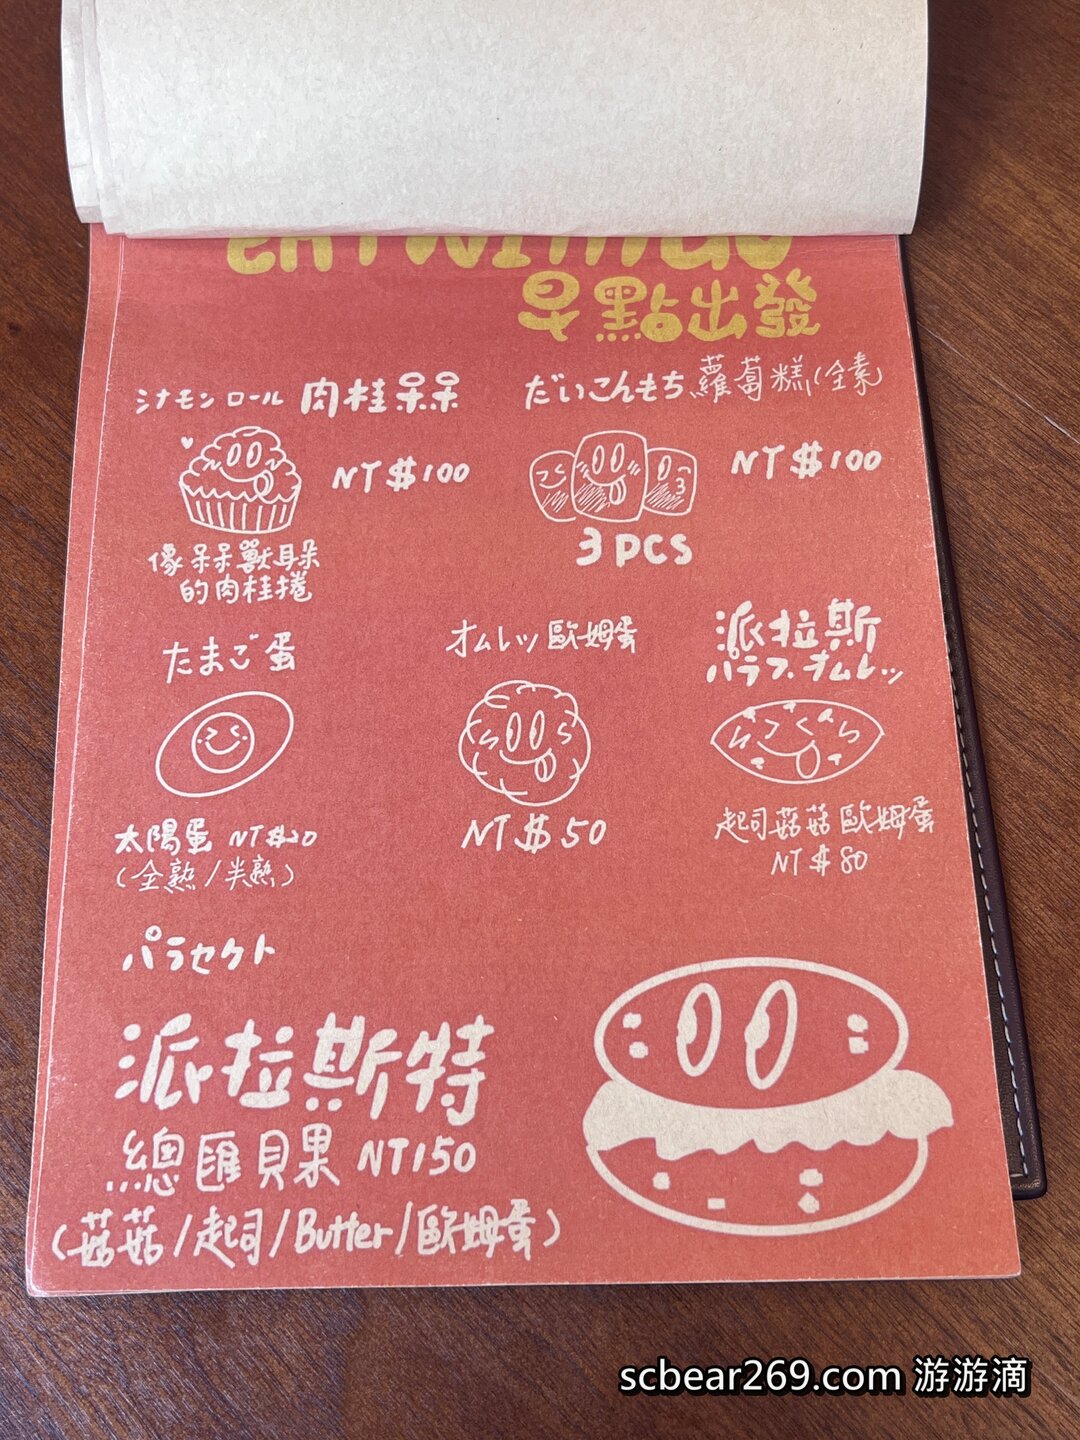 早點出發
シナモンロール 肉桂呆呆
NT$100
像呆呆獸耳朵
的肉桂捲
だいこんもち 蘿蔔糕(全素
NT$100
3pcs
たまご蛋
太陽蛋 NT$20
(全熟/半熟)
オムレッ歐姆蛋
NT$50
派拉斯
パラス.オムレッ
起司菇菇歐姆蛋
NT$80
パラセクト
派拉斯特
總匯貝果 NT150
(菇菇/起司/Butter/歐姆蛋)
scbear269.com 游游滴